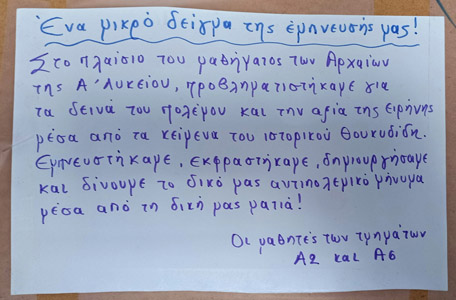 Ένα μικρό δείγμα της έμπνευσής μας!
Στο πλαίσιο του μαθήματος των Αρχαίων
της Α΄ Λυκείου, προβληματιστήκαμε για
τα δεινά του πολέμου και την αξία της ειρήνης
μέσα από τα κείμενα του ιστορικού Θουκυδίδη.
Εμπνευστήκαμε, εκφραστήκαμε, δημιουργήσαμε
και δίνουμε το δικό μας αντιπολεμικό μήνυμα
μέσα από τη δική μας ματιά!
Οι μαθητές των τμημάτων
Α2 και Α6